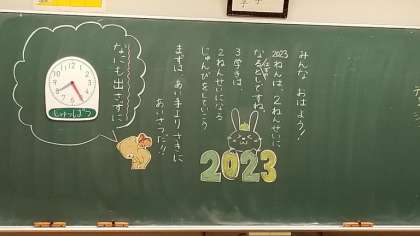 みんな おはよう!
2023ねんは、2ねんせいに
なるとしですね。
3学きは、
2ねんせいになる
じゅんびをしていこう
まずは、あい手よりさきに
あいさつだ!!
なにも出さずに
しゅっぱつ
2023